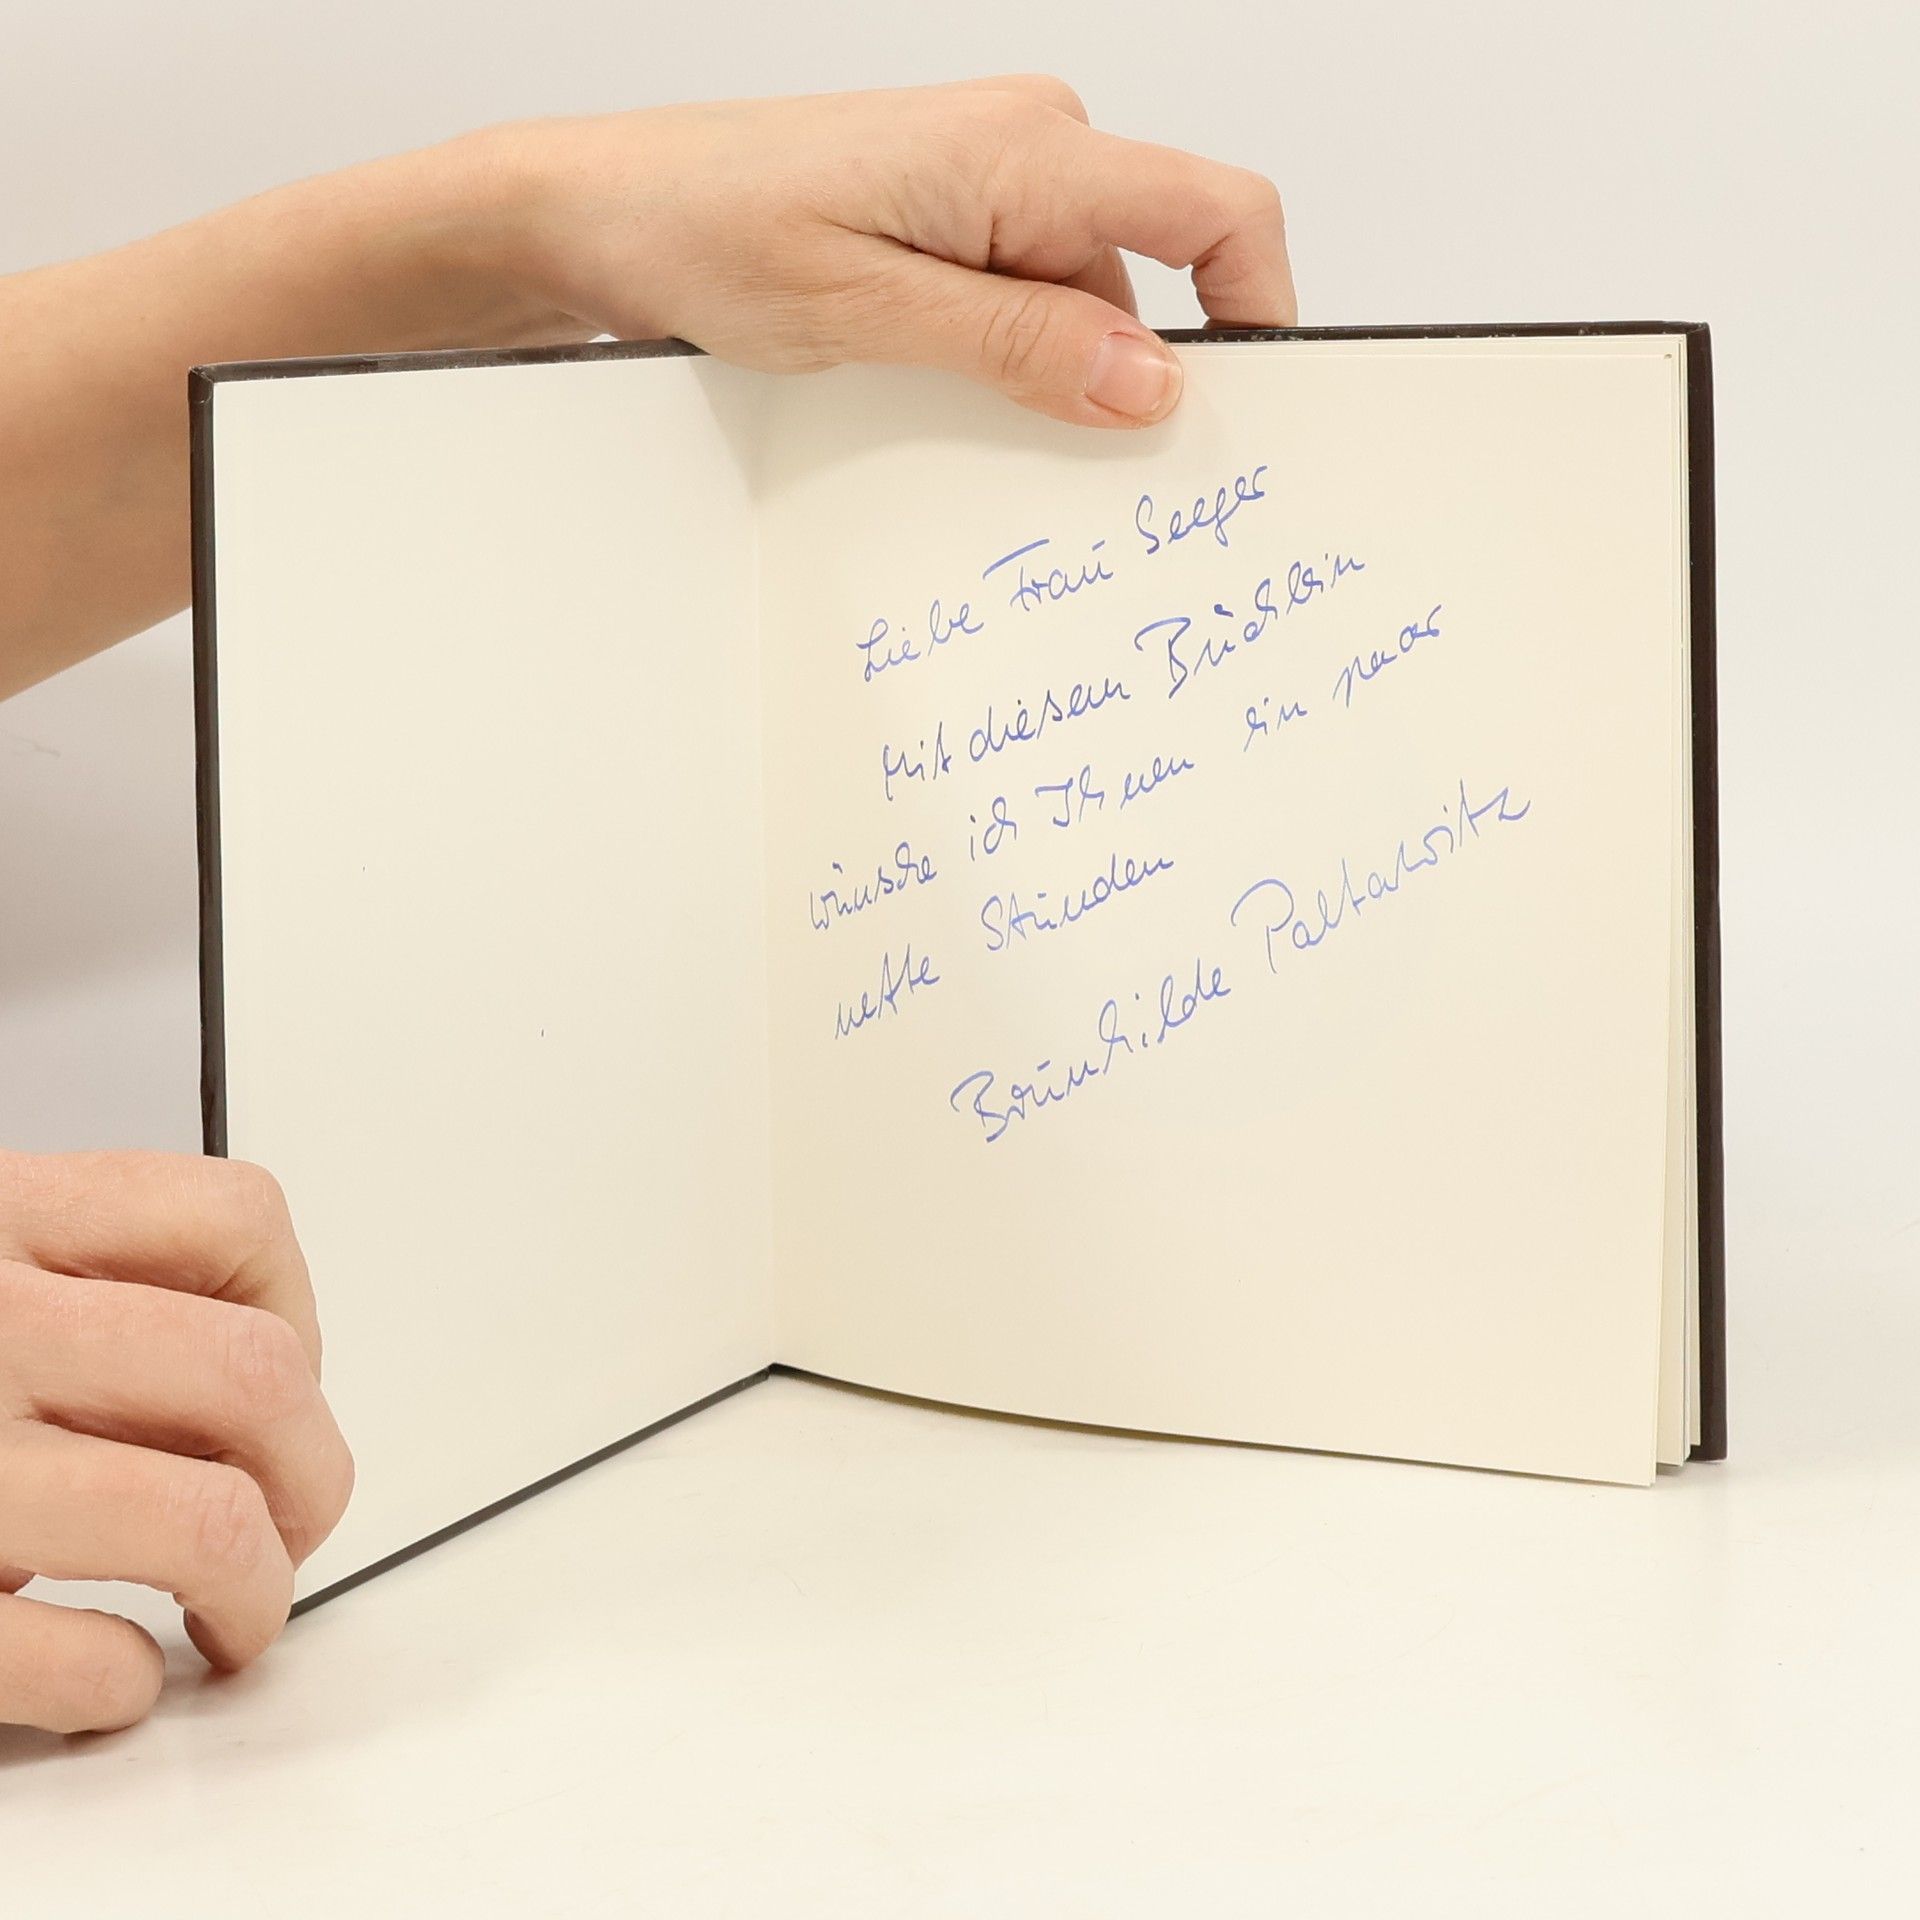 Liebe Frau Seeger
Mit diesem Büchlein
wünsche ich Ihnen ein paar
nette Stunden
Brunhilde